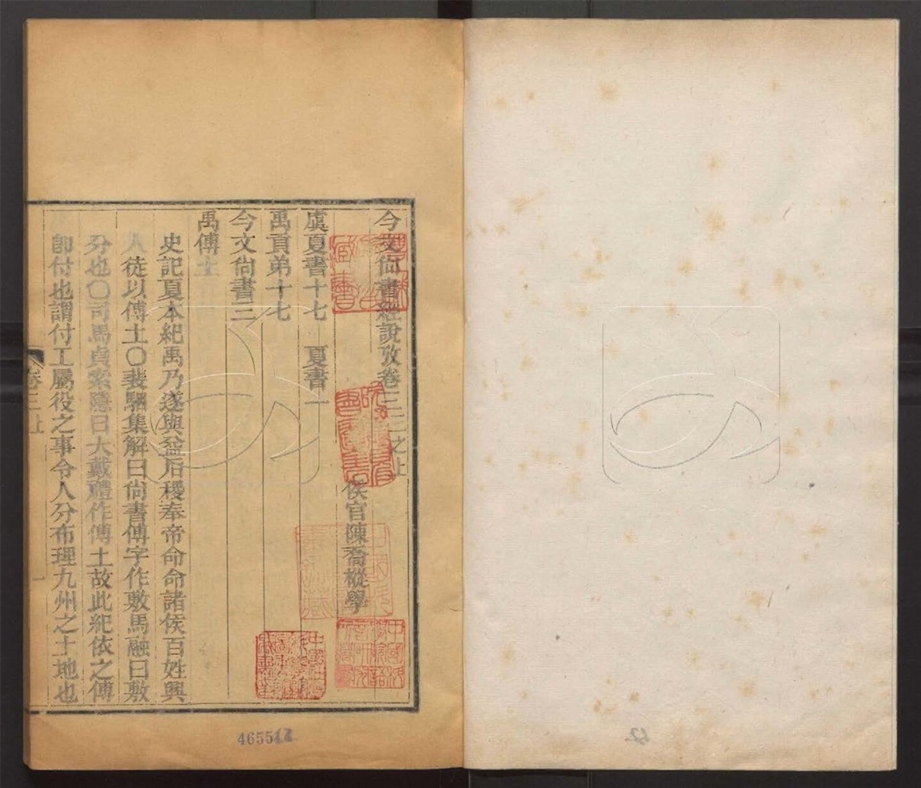 今文尙書經說攷卷三之上
侯官陳喬樅學
虞夏書十七 夏書一
禹貢弟十七
今文尙書二
禹傅土
史記夏本紀禹乃遂與益后稷奉帝命命諸侯百姓興
人徒以傅土〇裴駰集解曰尙書傅字作敷馬融曰敷
分也〇司馬貞索隱曰大戴禮作傅土故此紀依之傅
卽付也謂付工屬役之事令人分布理九州之土地也
卷三上
一
藏書
465544